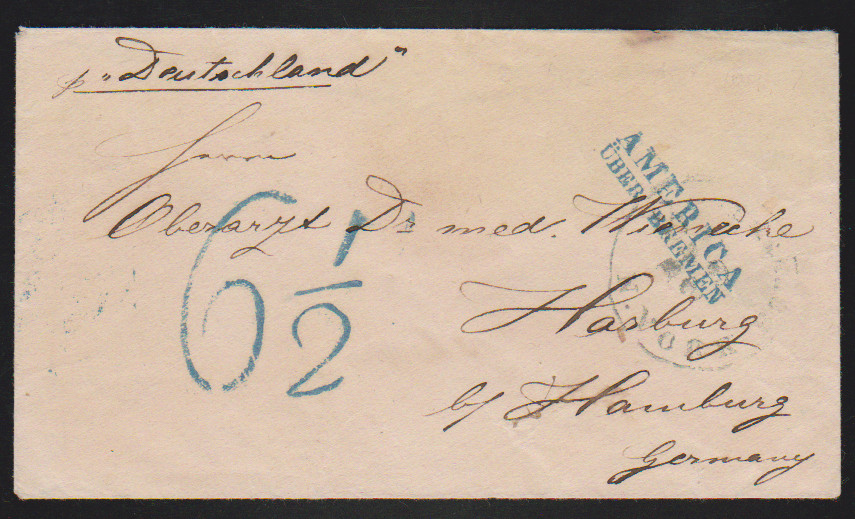 p "Deutschland"
Herrn
Oberarzt Dr med.
Harburg
b/ Hamburg
Germany
6 1/2
AMERICA
ÜBER BREMEN